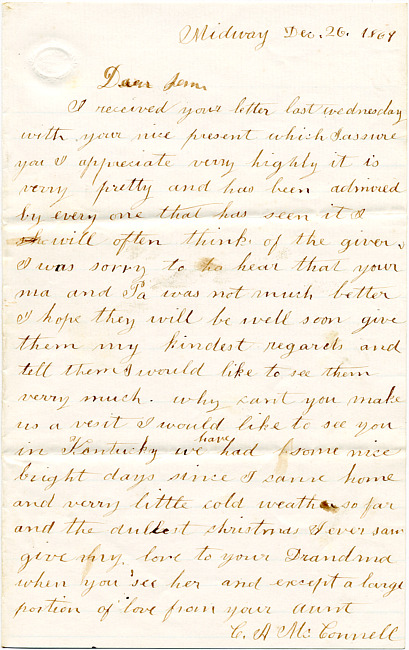 Midway Dec. 26. 1869
Dear Jenn
I received your letter last wednesday
with your nice present which I assure
you I appreciate verry highly it is
verry pretty and has been admired
by every one that has seen it I
will often think of the giver.
I was sorry to hear that your
ma and Pa was not much better
I hope they will be well soon give
them my kindest regards and
tell them I would like to see them
verry much. why cant you make
us a visit I would like to see you
in Kentucky we have had some nice
bright days since I came home
and verry little cold weather so far
and the dullest christmas I ever saw
give my love to your Grandma
when you see her and except a large
portion of love from your aunt
C. A McConnell